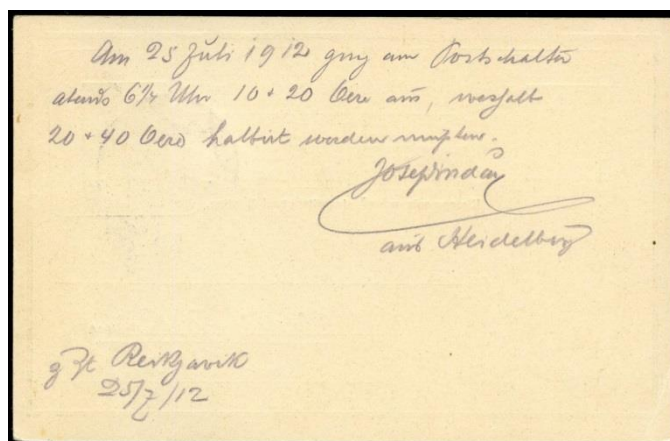 Am 25 Juli 1912 ging am Postschalter
abends 6¼ Uhr 10 + 20 Oere aus, weshalb
20 + 40 Oere halbirt werden mußten.
aus Heidelberg
z Zt Reikjavik
25/7/12